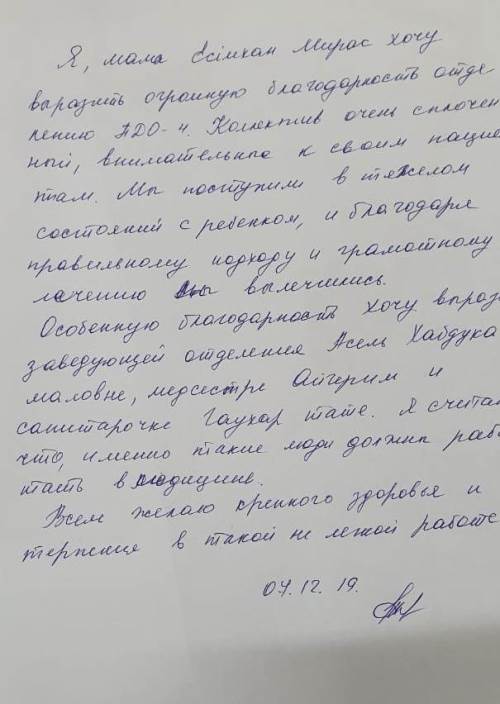 Я, мама Есімхан Мирас хочу
выразить огромную благодарность отде
лению ПДО-4. Коллектив очень сплочен
ный, внимательные к своим пацие
там. Мы поступили в тяжелом
состояний с ребенком, и благодаря
правильному подходу и грамотному
лечению мы вылечились.
Особенную благодарность хочу выраз
заведующей отделения Асель Хабдука
маловне, медсестре Айгерим и
санитарочке Гаухар тате. Я считаю
что, именно такие люди должны раб
тать в медицине.
Всем желаю крепкого здоровья и
терпение в такой не легкой работе
07.12.19.